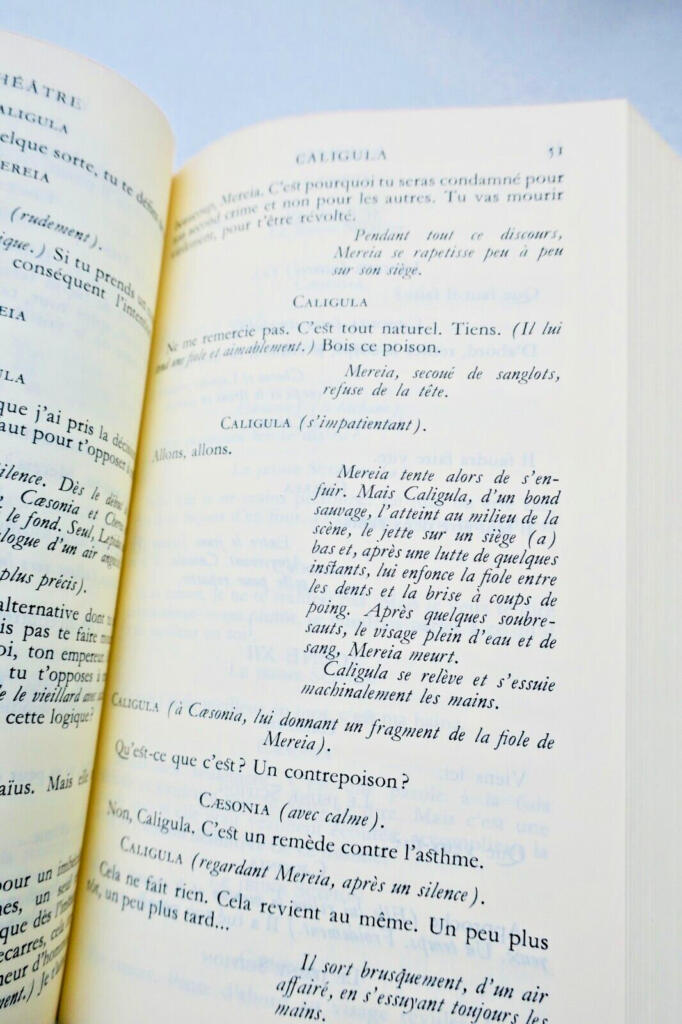 HÉÂTRE
ALIGULA
elque sorte, tu te
EREIA
(rudement).
ique.) Si tu prends un
conséquent
EIA
ULA
que j'ai pris la
aut pour t'opposer
ilence. Dès le début
, Cæsonia et
le fond. Seul,
alogue d'un air
plus précis).
alternative dont
is pas te faire
oi, ton empereur
tu t'opposes
le le vieillard avec
cette logique?
aïus. Mais elle
pour un
nes, un seul
que dès
ecarres, cela
neur
ment.) Je
CALIGULA 51
beaucoup, Mereia. C'est pourquoi tu seras condamné pour
ton second crime et non pour les autres. Tu vas mourir
pour t'être révolté.
Pendant tout ce discours,
Mereia se rapetisse peu à peu
sur son siège.
CALIGULA
Ne me remercie pas. C'est tout naturel. Tiens. (Il lui
tend une fiole et aimablement.) Bois ce poison.
Mereia, secoué de sanglots,
refuse de la tête.
CALIGULA (s'impatientant).
Allons, allons.
Mereia tente alors de s'en-
fuir. Mais Caligula, d'un bond
sauvage, l'atteint au milieu de la
scène, le jette sur un siège (a)
bas et, après une lutte de quelques
instants, lui enfonce la fiole entre
les dents et la brise à coups de
poing. Après quelques soubre-
sauts, le visage plein d'eau et de
sang, Mereia meurt.
Caligula se relève et s'essuie
machinalement les mains.
CALIGULA (à Cæsonia, lui donnant un fragment de la fiole de
Mereia).
Qu'est-ce que c'est? Un contrepoison?
CÆSONIA (avec calme).
Non, Caligula. C'est un remède contre l'asthme.
CALIGULA (regardant Mereia, après un silence).
Cela ne fait rien. Cela revient au même. Un peu plus
tôt, un peu plus tard...
Il sort brusquement, d'un air
affairé, en s'essuyant toujours les
mains.